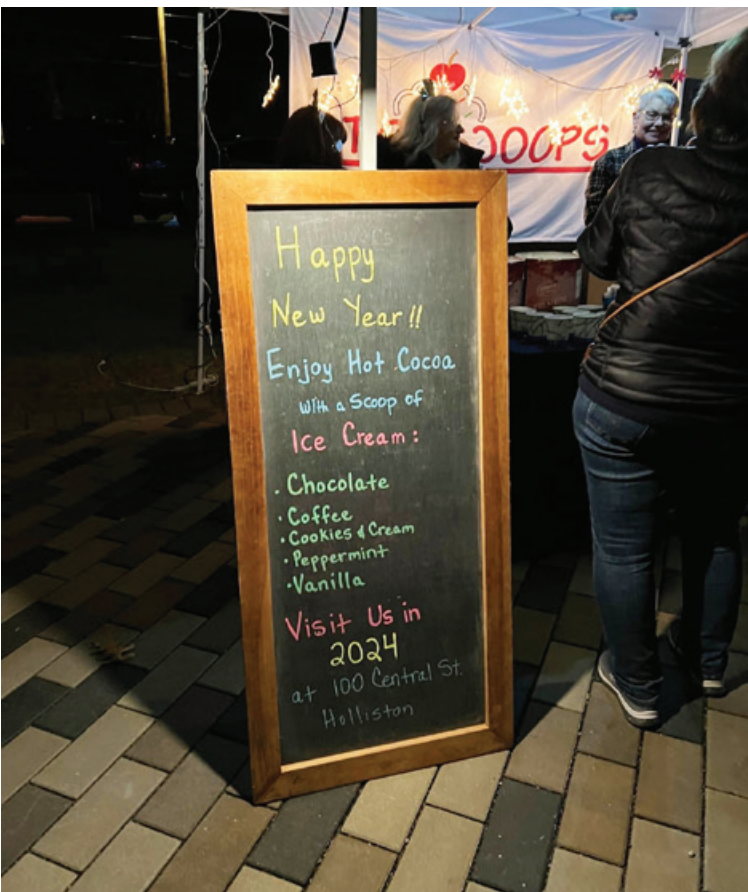 OOPS
Happy
New Year!!
Enjoy Hot Cocoa
with a Scoop of
Ice Cream:
• Chocolate
• Coffee
• Cookies & Cream
• Peppermint
• Vanilla
Visit Us in
2024
at 100 Central St.
Holliston